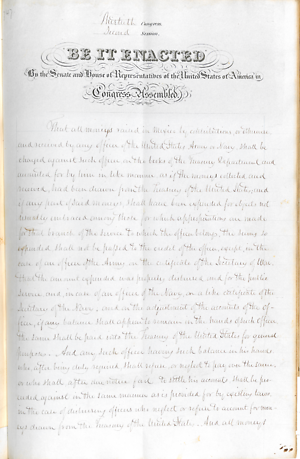 Thirtieth Congress
Second Session
BE IT ENACTED
By the Senate and House of Representatives of the United States of America in
Congress Assembled,
That all moneys raised in Mexico by
and received by any officer of the United States Army or Navy shall be
charged against such officer on the books of the Treasury Department, and
accounted for by him in like manner as if the moneys collected and
received had been drawn from the Treasury of the United States, and
if any part of said moneys shall have been expended for objects not
embraced among those for which appropriations are made
for that branch of the service to which the officer belongs the sums so
expended shall not be passed to the credit of the officer, except, in the
case of an officer of the Army on the certificate of the Secretary of War,
that the amount expended was properly disbursed and for the public
service and in case of an officer of the Navy, on a like certificate of the
Secretary of the Navy, and on the adjustment of the accounts of the of-
ficer, if any balance shall appear to remain in the hands of such officer
the same shall be paid into the Treasury of the United States for general
purposes. And any such officer having such balance in his hands
who after being duly required shall refuse or neglect to pay over the same,
or who shall after due notice fail to settle his accounts shall be pro-
ceeded against in the same manner as is provided for by existing laws
in the case of disbursing officers who neglect or refuse to account for mon-
eys drawn from the Treasury of the United States. And all moneys